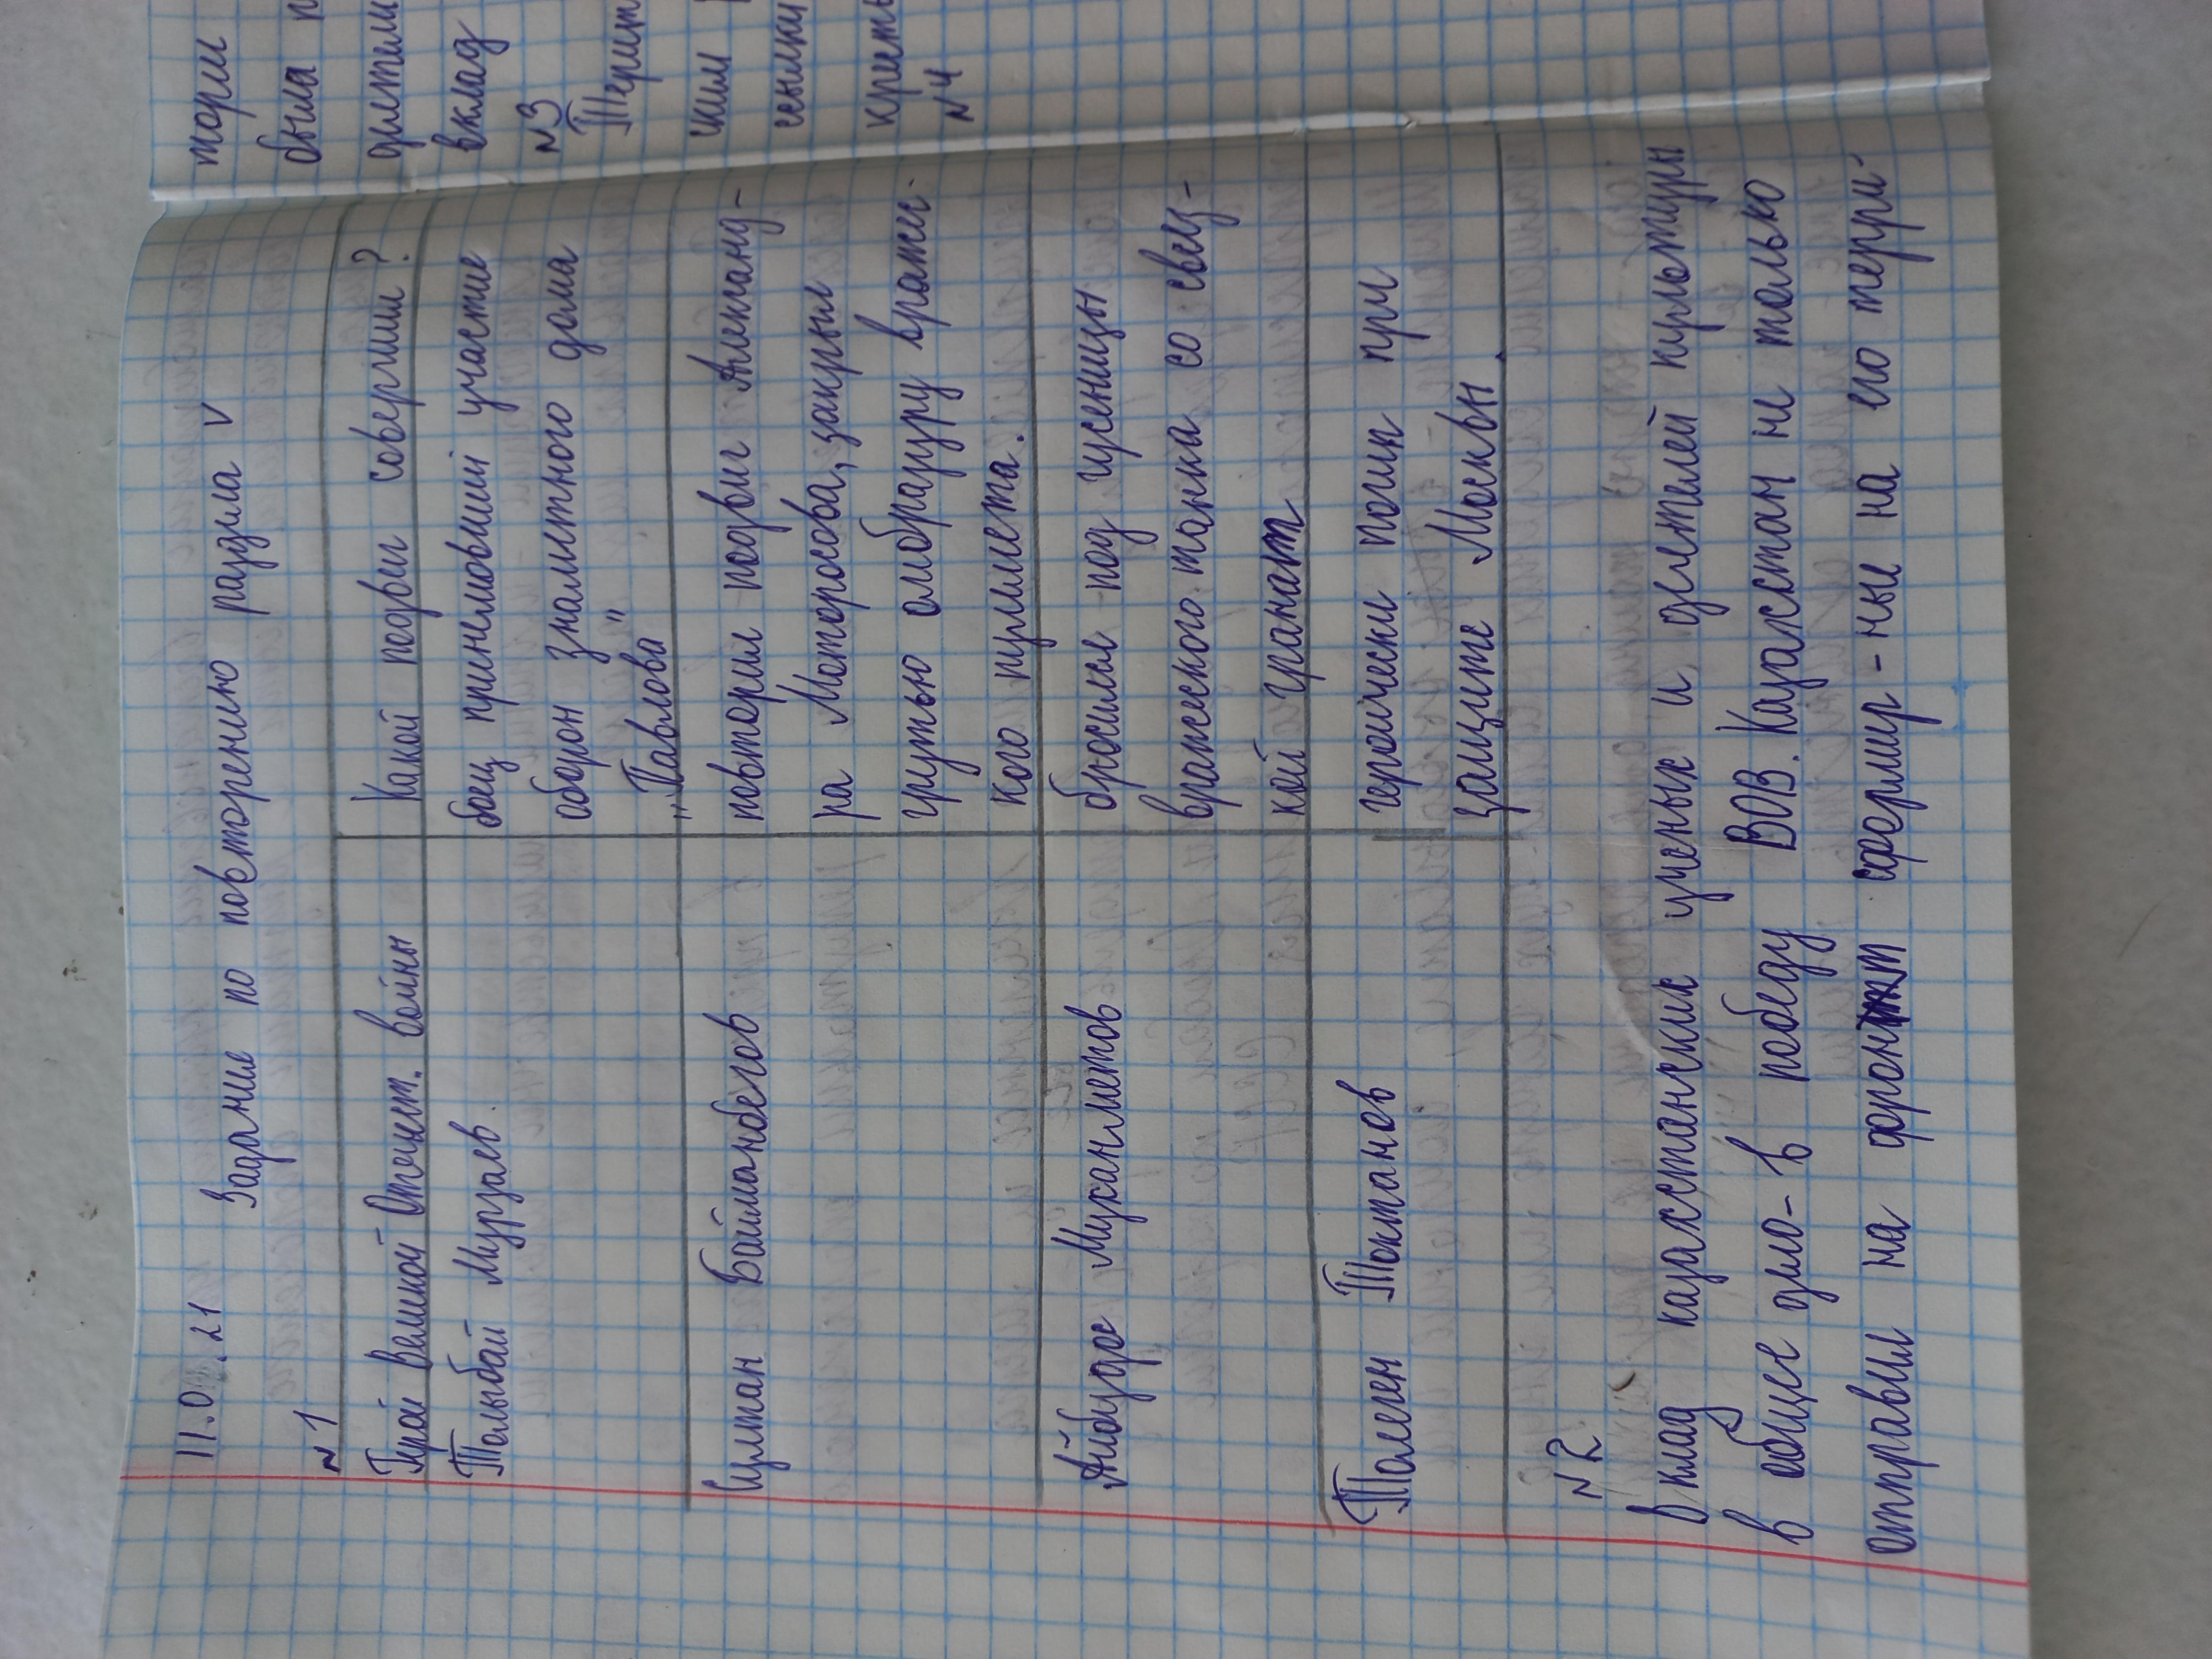 11.0 .21
Задание по повторению раздела V
№1
Герой Великой Отечест. войны Какой подвиг совершил?
Толыбай Мурзаев боец принемовший участие
оборон знаменитного дома
„Павлова"
Султан Баймаибегов повторил подвиг Александ-
ра Моторосова, закрыл
грутью амбразуру вражес-
кого пулемета.
Айбидос Мухамметов бросился под гусеницы
вражеского танка со связ-
кой гранат
Толеген Токтамов героически погик при
защите Москвы.
№2
Вклад казахстанских ученых и деятелей культуры
в общее дело - в победу ВОВ. Казахстан не только
отправил на фронт сформир-ные на его терри-
тори
была п
деятели
вклад
№3
Терит
ским
ссылки
кресть
№4